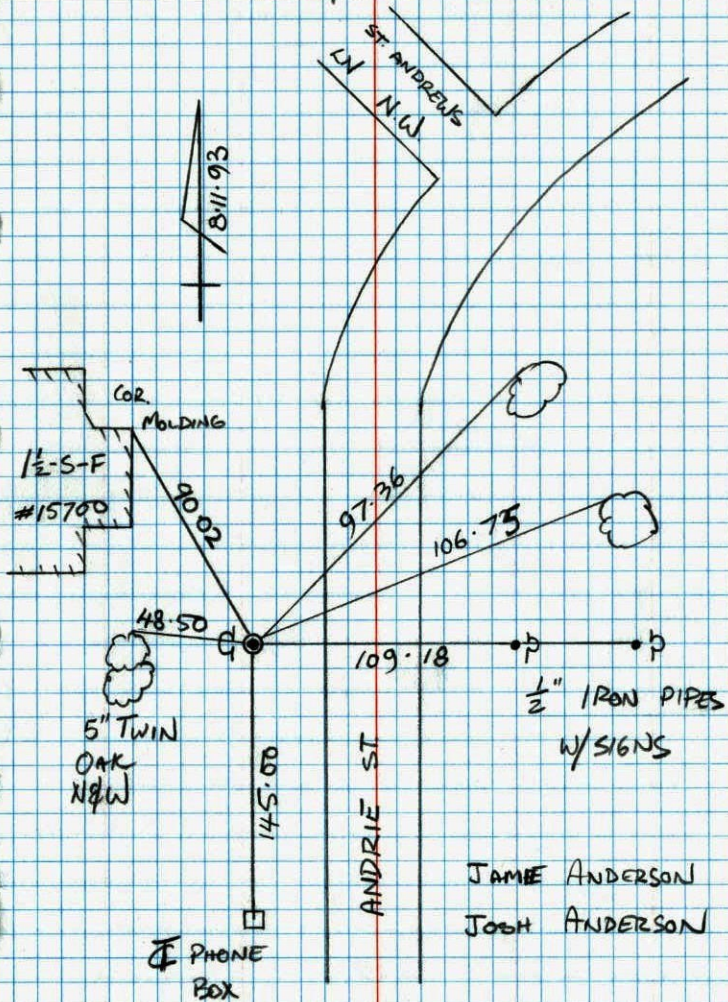 ST. ANDREWS
LN N.W.
8.11.93
COR.
MOLDING
1½-S-F
#15700
90.02
97.36
106.75
48.50
109.18
5" TWIN
OAK
N&W
½" IRON PIPES
W/SIGNS
ANDRIE ST.
JAMIE ANDERSON
JOSH ANDERSON
PHONE
BOX